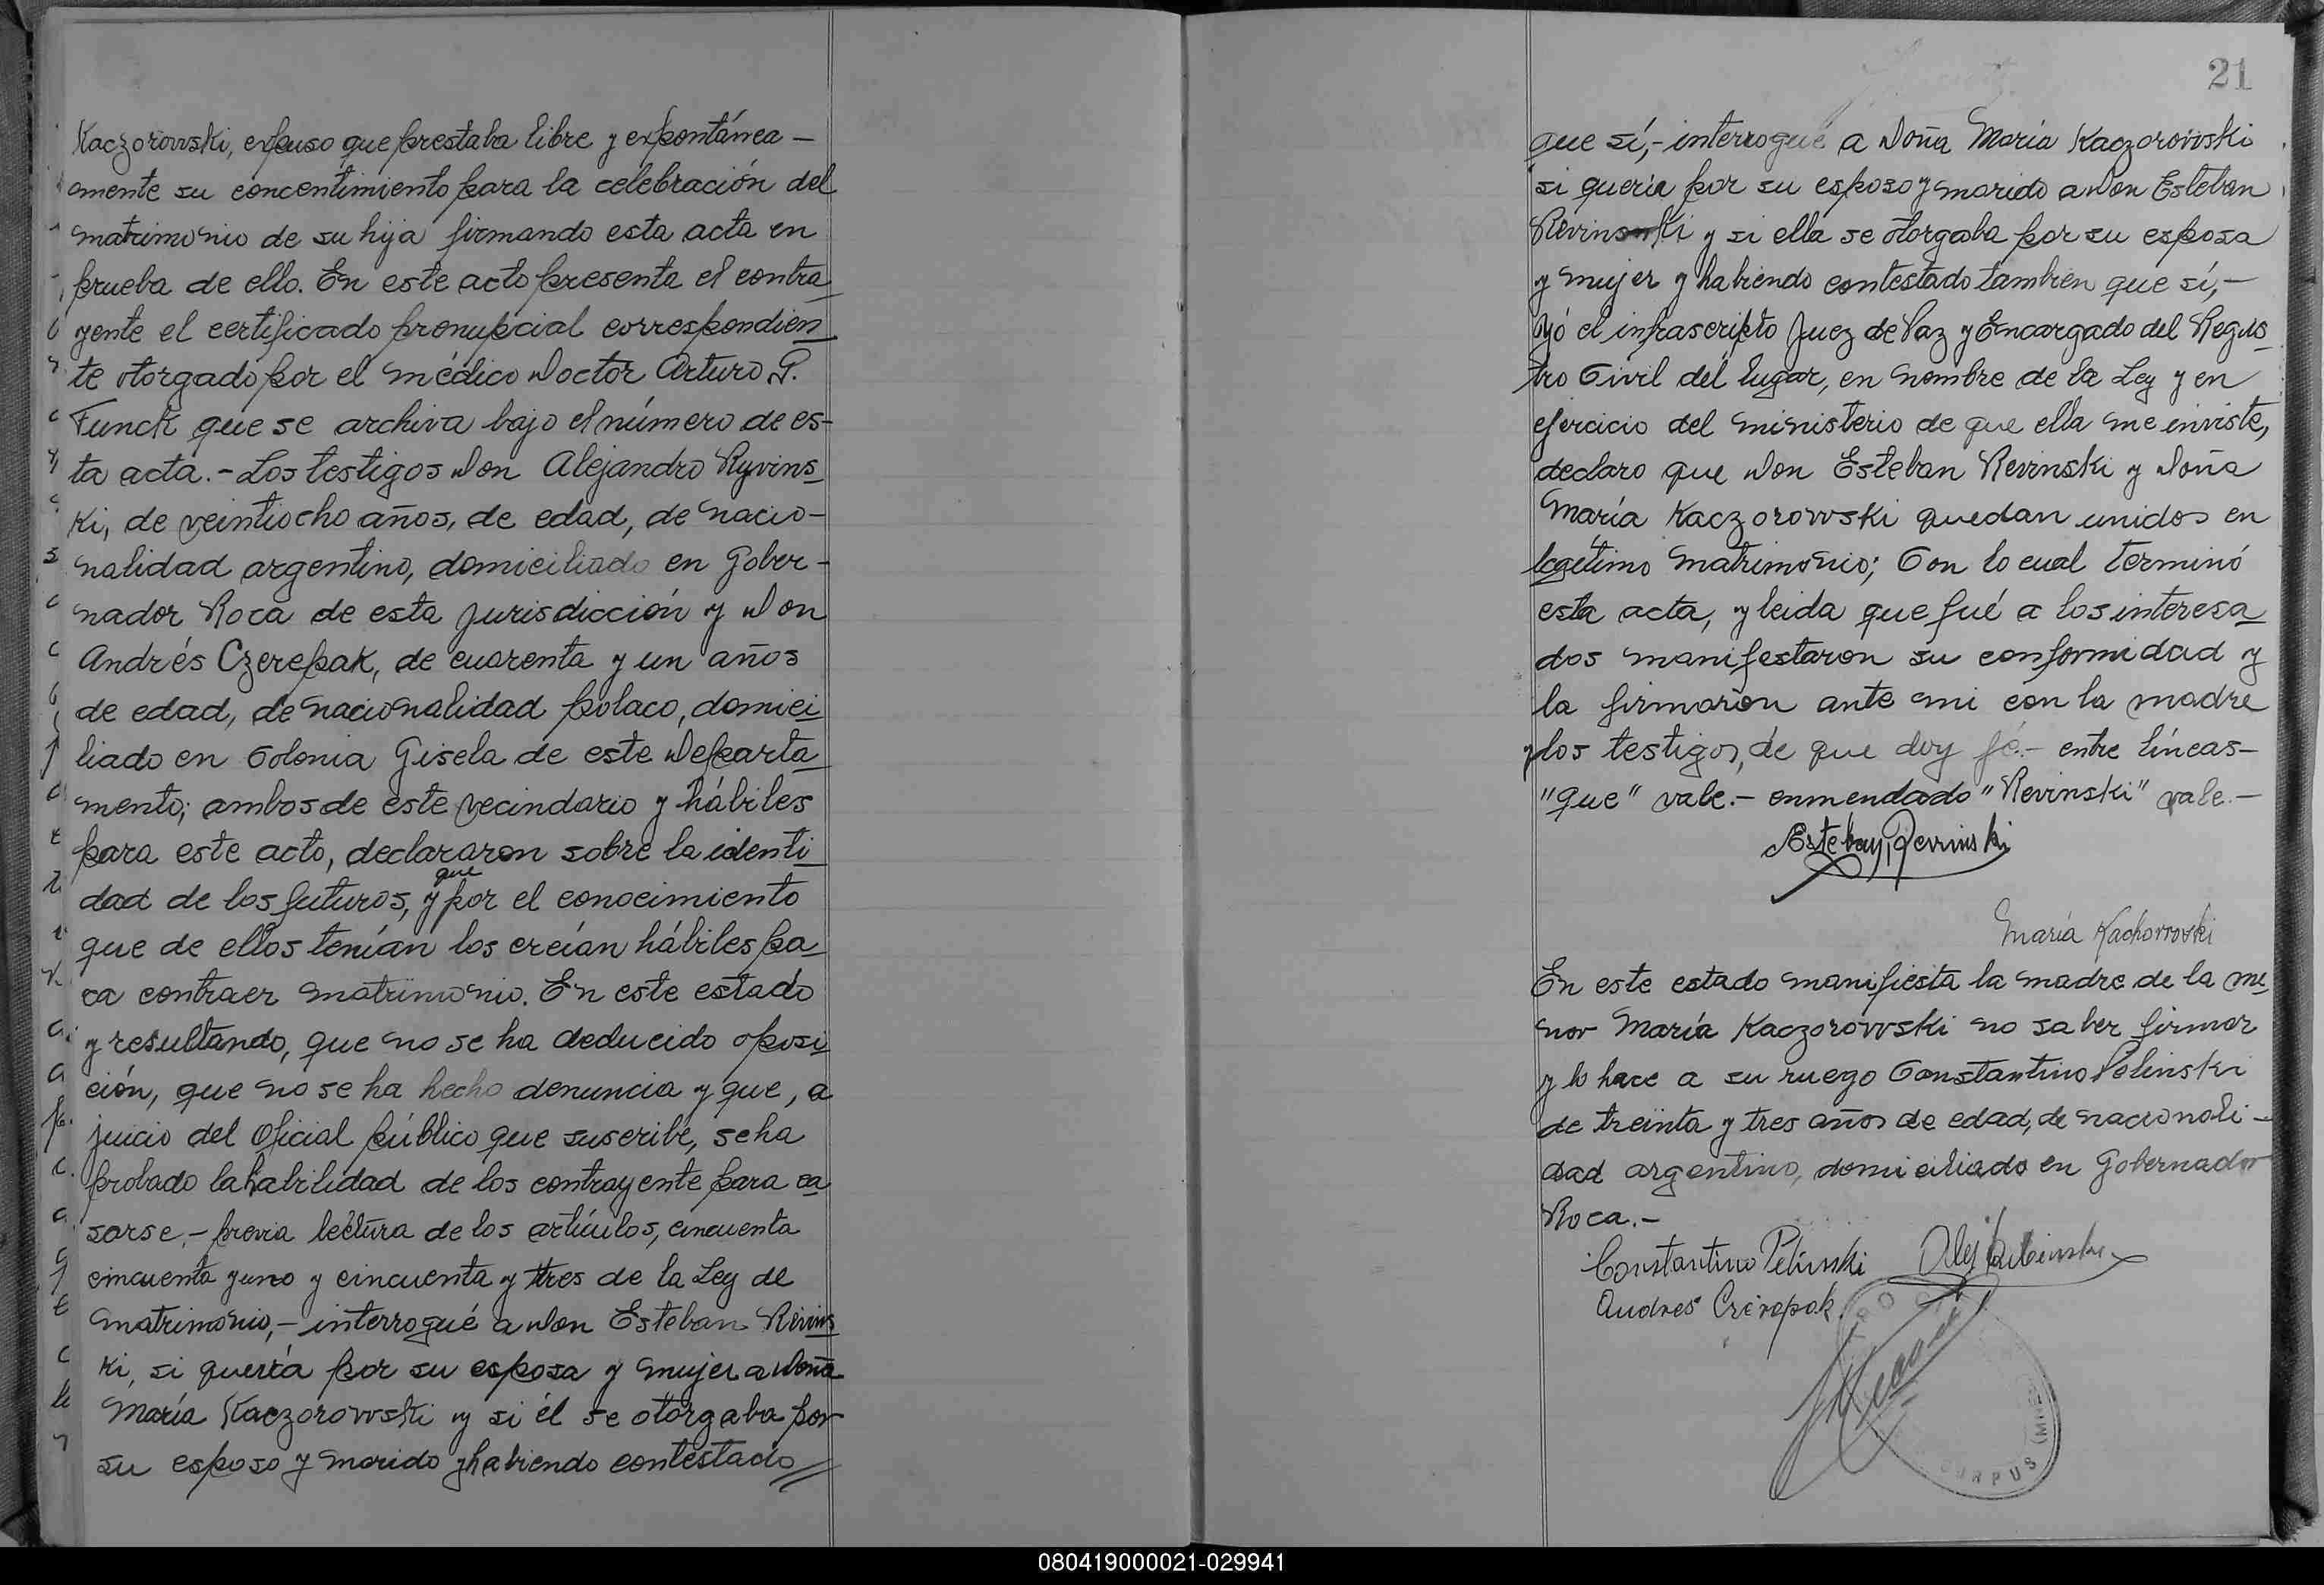 Kaczorowski, expuso que prestaba libre y expontánea-
amente su concentimiento para la celebración del
matrimonio de su hija firmando esta acta en
prueba de ello. En este acto presenta el contra
yente el certificado pronupcial correspondien
te otorgado por el médico Doctor Arturo P.
Funck que se archiva bajo el número de es-
ta acta.- Los testigos Don Alejandro Ryvins
Ki, de veintiocho años, de edad, de nacio-
nalidad argentino, domiciliado en Gober-
nador Roca de esta Jurisdicción y Don
Andrés Czerepak, de cuarenta y un años
de edad, de nacionalidad polaco, domici
liado en Colonia Gisela de este Departa
mento; ambos de este vecindario y hábiles
para este acto, declararon sobre la identi
dad de los futuros, y que por el conocimiento
que de ellos tenían los creían hábiles pa
ra contraer matrimonio. En este estado
y resultando, que no se ha deducido oposi
ción, que no se ha hecho denuncia y que, a
juicio del Oficial público que suscribe, se ha
probado la habilidad de los contrayente para ca
sarse.- previa lectura de los artículos, cincuenta
cincuenta y uno y cincuenta y tres de la Ley de
matrimonio,- interrogué a Don Esteban Revins
Ki, si quería por su esposa y mujer a Doña
María Kaczorowski y si él se otorgaba por
su esposo y marido y habiendo contestado
21
que sí,- interrogué a Doña María Kaczorowski
si quería por su esposo y marido a Don Esteban
Revinski y si ella se otorgaba por su esposa
y mujer y habiendo contestado también que sí,-
Yó el infrascripto Juez de Paz y Encargado del Regis
tro Civil del lugar, en nombre de la Ley y en
ejercicio del ministerio de que ella me inviste,
declaro que Don Esteban Revinski y Doña
María Kaczorowski quedan unidos en
legítimo matrimonio; Con lo cual terminó
esta acta, y leida que fué a los interesa
dos manifestaron su conformidad y
la firmarón ante mi con la madre
y los testigos, de que doy fé.- entre líneas-
"que" vale.- enmendado "Revinski" vale.-
Esteban Revinski
María Kachorovski
En este estado manifiesta la madre de la me
nor María Kaczorowski no saber firmar
y lo hace a su ruego Constantino Pelinski
de treinta y tres años de edad, de nacionali-
dad argentino, domiciliado en Gobernador
Roca.-
Constantino Pelinski
Andres Czerepak
CORPUS (MNES)
080419000021-029941